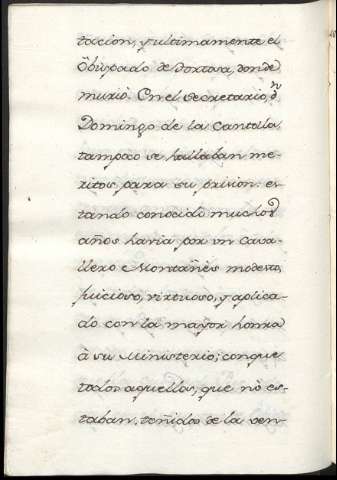 tacion, y ultimamente el
Obispado de Tortosa, donde
murió. En el Secretario, Dn
Domingo de la Cantolla
tampoco se hallaban me-
ritos, para su prision: es-
tando conocido muchos
años havia por vn Cava-
llero Montañès modesto,
juicioso, virtuoso, y aplica-
do con la mayor honra
à su Ministerio; conque
todos aquellos, que nò es-
taban, teñidos de la ven-